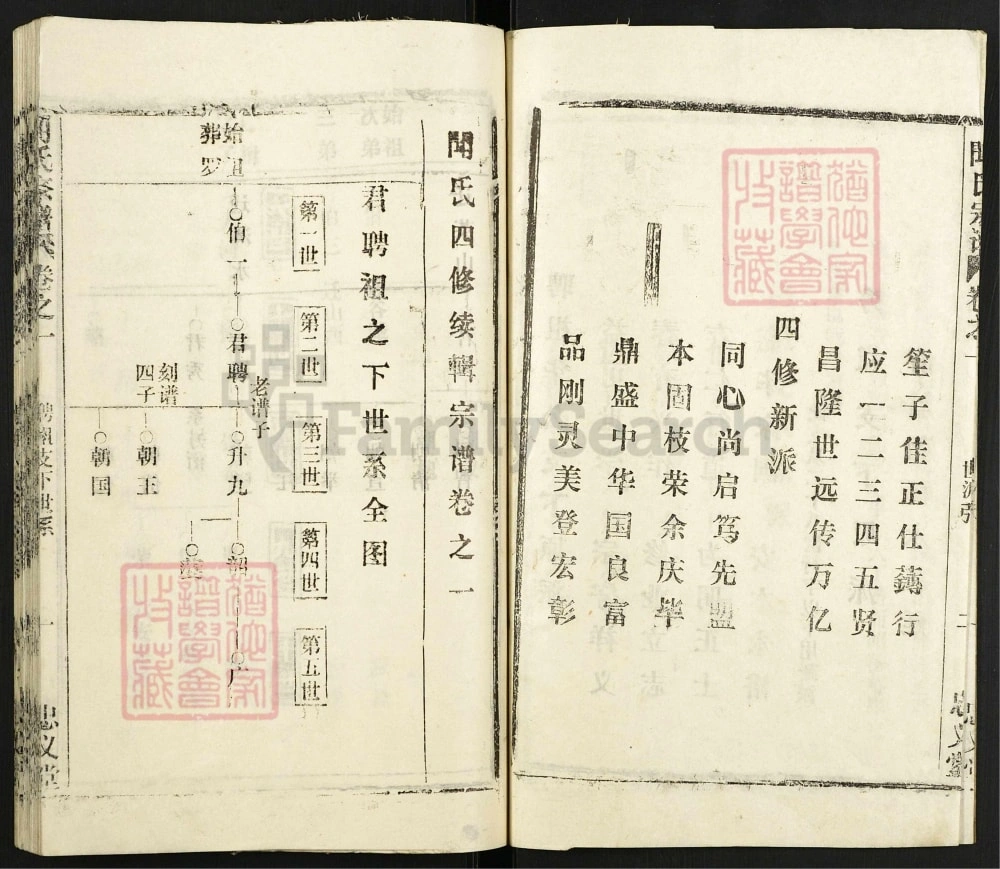 笙子佳正仕鑄行
应一二三四五贤
昌隆世远传万亿
四修新派
同心尚启笃先盟
本固枝荣余庆毕
鼎盛中华国良富
品刚灵美登宏彰
聞氏宗谱
卷之一
世派引
二
忠义堂
聞氏四修续辑宗谱卷之一
君聘祖之下世系全图
第一世
第二世
第三世
第四世
第五世
始祖
葬罗
伯一
君聘
老谱子
升九
刻谱
四子
朝王
朝国
聞氏宗譜
卷之一
聘祖支下世系
一
忠义堂
FamilySearch
譜學會
收藏
譜學會
收藏